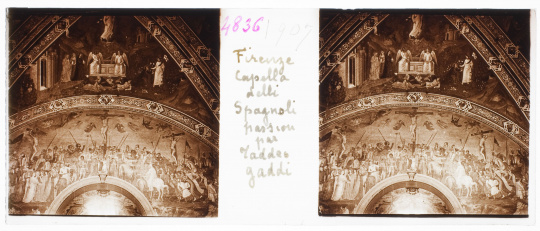 4836
Firenze
Capella
delli
Spagnoli
passion
par
Taddeo
gaddi